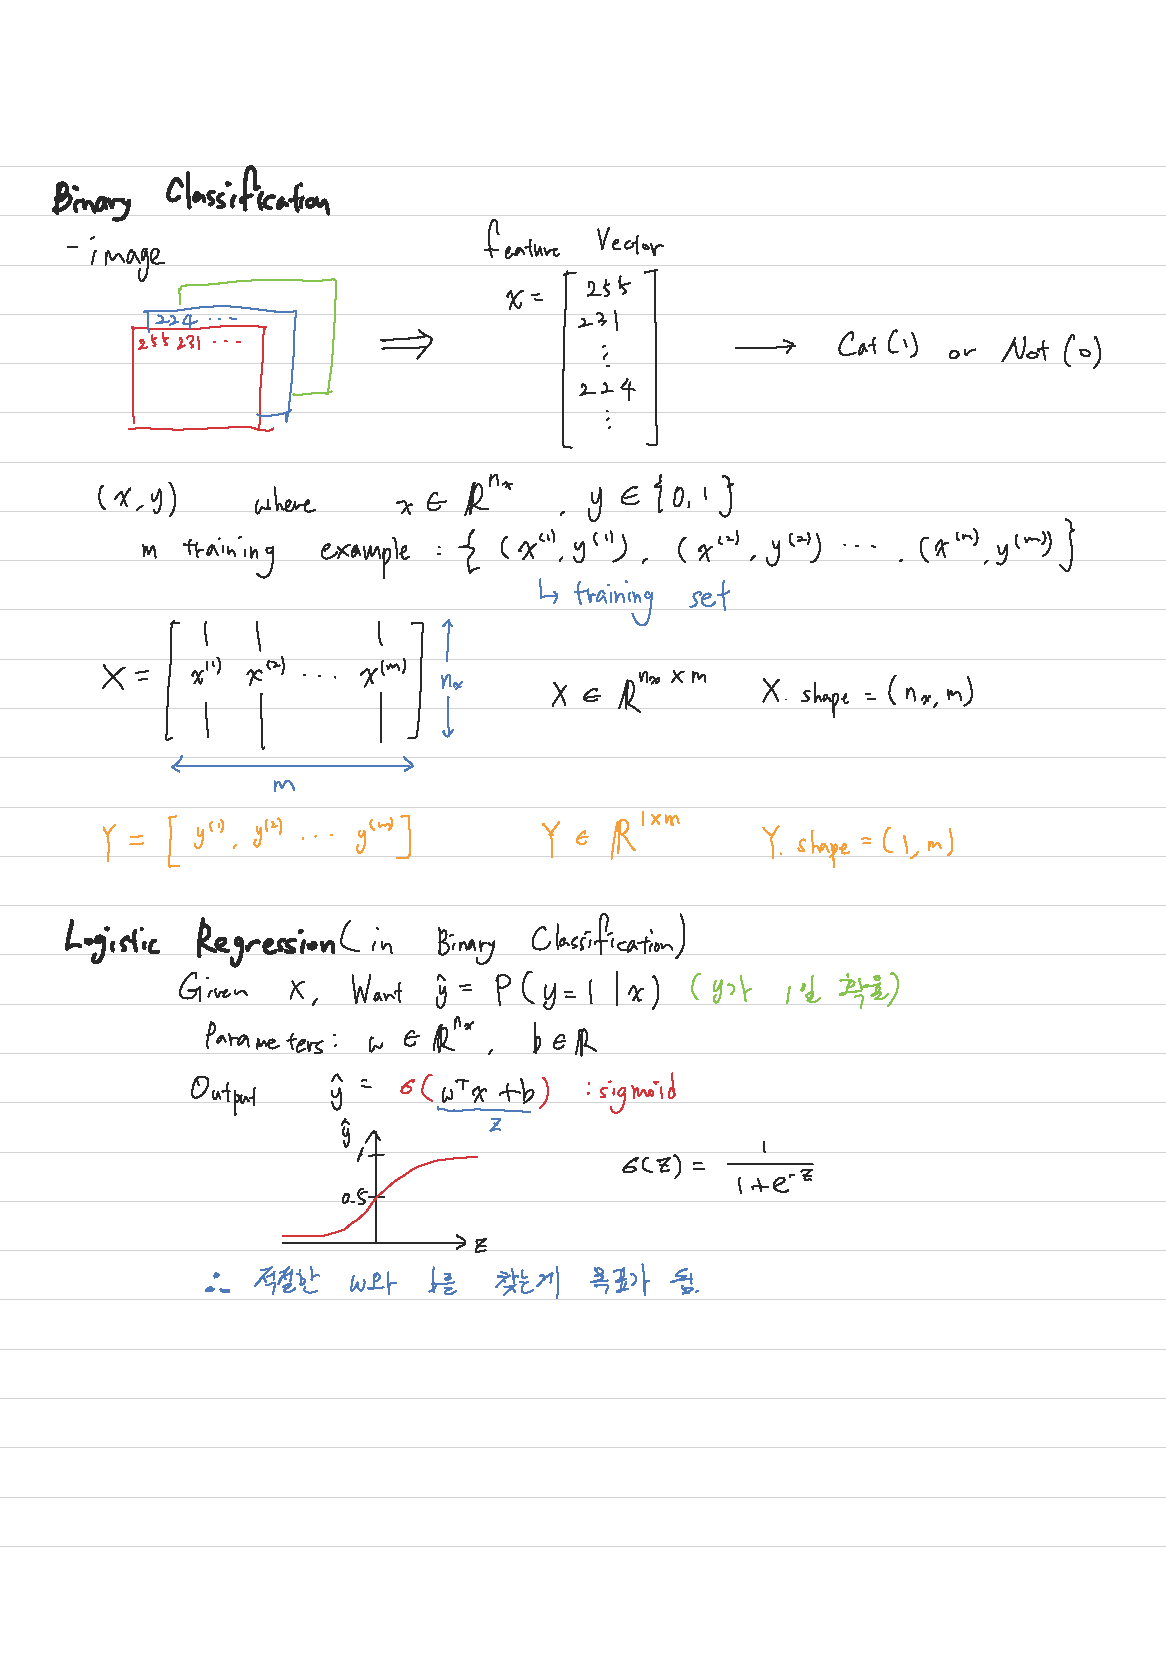 Binary Classification
- image
feature Vector
224 ...
255 231 ...
x = [ 255 231 ⋮ 224 ⋮ ]
Cat (1) or Not (0)
(x, y) where x ∈ ℝ^{n_x}, y ∈ {0, 1}
m training example : { (x^{(1)}, y^{(1)}), (x^{(2)}, y^{(2)}) ... , (x^{(m)}, y^{(m)}) }
↳ training set
X = [ x^{(1)} x^{(2)} ... x^{(m)} ] n_x X ∈ ℝ^{n_x × m} X. shape = (n_x, m)
m
Y = [ y^{(1)}, y^{(2)} ... y^{(m)} ] Y ∈ ℝ^{1×m} Y. shape = (1, m)
Logistic Regression (in Binary Classification)
Given X, Want ŷ = P(y=1 | x) (y가 1일 확률)
Parameters : w ∈ ℝ^{n_x}, b ∈ ℝ
Output ŷ = σ(w^T x + b) : sigmoid
z
ŷ
1
0.5
z
σ(z) = 1 / (1 + e^{-z})
∴ 적절한 w와 b를 찾는게 목표가 됨.